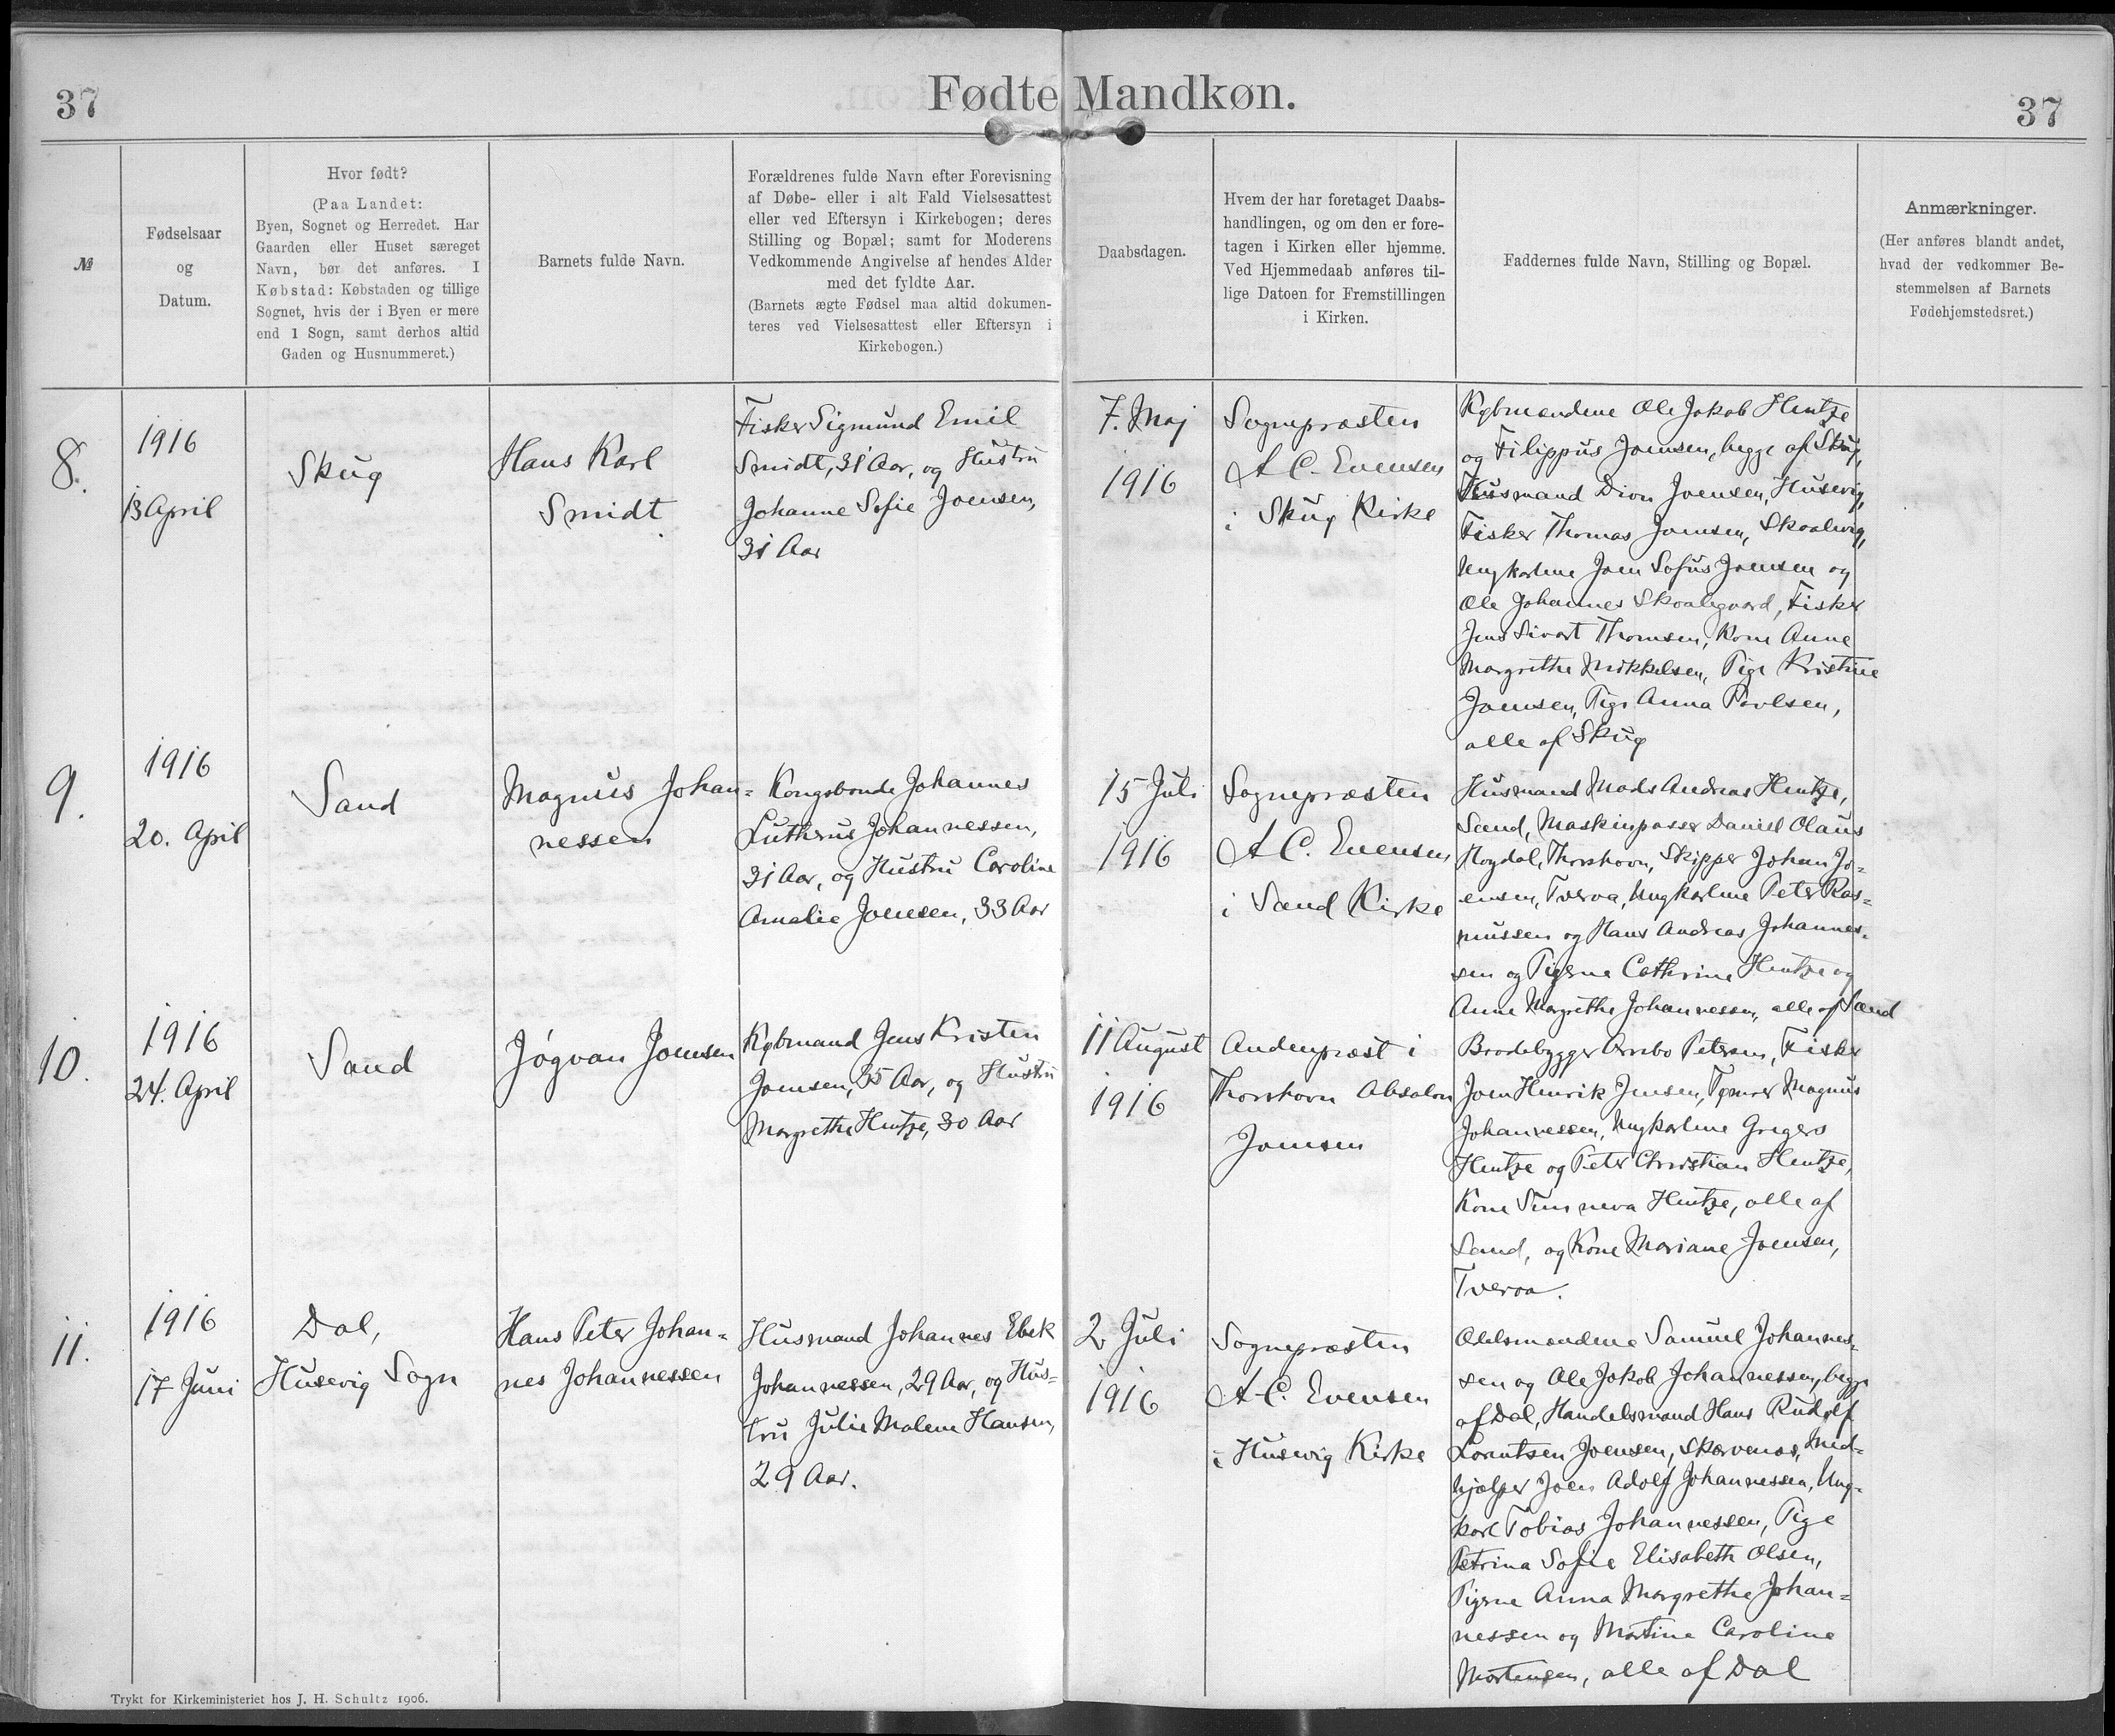 37
Fødte Mandkøn.
37
№
Fødselsaar
og
Datum.
Hvor født?
(Paa Landet:
Byen, Sognet og Herredet. Har
Gaarden eller Huset særeget
Navn, bør det anføres. I
Købstad: Købstaden og tillige
Sognet, hvis der i Byen er mere
end 1 Sogn, samt derhos altid
Gaden og Husnummeret.)
Barnets fulde Navn.
Forældrenes fulde Navn efter Forevisning
af Døbe- eller i alt Fald Vielsesattest
eller ved Eftersyn i Kirkebogen; deres
Stilling og Bopæl; samt for Moderens
Vedkommende Angivelse af hendes Alder
med det fyldte Aar.
(Barnets ægte Fødsel maa altid dokumen-
teres ved Vielsesattest eller Eftersyn i
Kirkebogen.)
Daabsdagen.
Hvem der har foretaget Daabs-
handlingen, og om den er fore-
tagen i Kirken eller hjemme.
Ved Hjemmedaab anføres til-
lige Datoen for Fremstillingen
i Kirken.
Faddernes fulde Navn, Stilling og Bopæl.
Anmærkninger.
(Her anføres blandt andet,
hvad der vedkommer Be-
stemmelsen af Barnets
Fødehjemstedsret.)
8.
1916
13 April
Skug
Hans Karl
Smidt
Fisker Sigmund Emil
Smidt, 31 Aar, og Hustru
Johanne Sofie Joensen,
31 Aar
7. Maj
1916
Sognepræsten
A C. Evensen
i Skug Kirke
Købmændene Ole Jakob Hentze
og Filippus Joensen, begge af Skug,
Husmand Dion Joensen, Husevig,
Fisker Thomas Joensen, Skaalevig,
Ungkarlene Joen Sofus Joensen og
Ole Johannes Skaalegaard, Fisker
Jens Sivart Thomsen, Kone Anne
Margrethe Mikkelsen, Pige Kristine
Joensen, Pige Anna Poulsen,
alle af Skug
9.
1916
20. April
Sand
Magnus Johan=
nessen
Kongsbonde Johannes
Lutherus Johannessen,
31 Aar, og Hustru Caroline
Amalie Joensen, 33 Aar
15 Juli
1916
Sognepræsten
A C. Evensen
i Sand Kirke
Husmand Mads Andreas Hentze,
Sand, Maskinpasser Daniel Olaus
Høgdal, Thorshavn, Skipper Johan Jo=
ensen, Tveraa, Ungkarlene Peter Ras=
mussen og Hans Andreas Johannes=
sen og Pigerne Cathrine Hentze og
Anne Margrethe Johannessen, alle af Sand
10.
1916
24. April
Sand
Jógvan Joensen
Købmand Jens Kristen
Joensen, 35 Aar, og Hustru
Margrethe Hentze, 30 Aar
11 August
1916
Andenpræst i
Thorshavn Absalon
Joensen
Baadebygger Arnbo Petersen, Fisker
Joen Henrik Jensen, Tømrer Magnus
Johannessen, Ungkarlene Gregers
Hentze og Peter Christian Hentze,
Kone Sunneva Hentze, alle af
Sand, og Kone Mariane Joensen,
Tveraa.
11.
1916
17 Juni
Dal,
Husevig Sogn
Hans Peter Johan=
nes Johannessen
Husmand Johannes Ebek
Johannessen, 29 Aar, og Hus=
tru Julie Malene Hansen,
29 Aar.
2 Juli
1916
Sognepræsten
A C. Evensen
i Husevig Kirke
Odelsmændene Samuel Johannes=
sen og Ole Jakob Johannessen, begge
af Dal, Handelsmand Hans Rudolf
Lorentsen Joensen, Skarvenæs, Med=
hjælper Joen Adolf Johannessen, Ung=
karl Tobias Johannessen, Pige
Petrina Sofie Elisabeth Olsen,
Pigerne Anna Margrethe Johan=
nessen og Martine Caroline
Mortensen, alle af Dal
Trykt for Kirkeministeriet hos J. H. Schultz 1906.